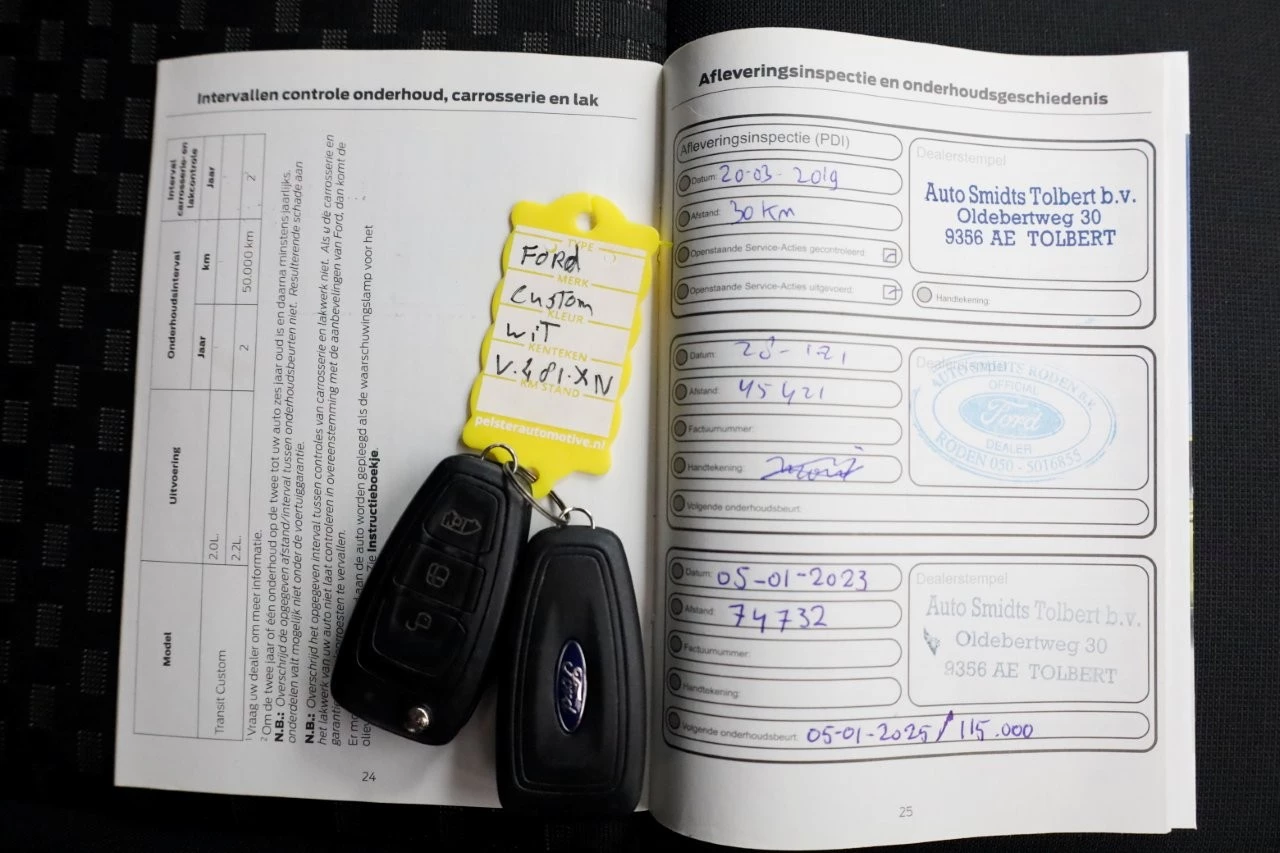 Intervallen controle onderhoud, carrosserie en lak
Model
Uitvoering
Onderhoudsinterval
Interval carrosserie- en lakcontrole
Jaar
km
Jaar
Transit Custom
2.0L.
2.2L.
2
50.000 km
2
Vraag uw dealer om meer informatie.
Om de twee jaar of één onderhoud op de twee tot uw auto zes jaar oud is en daarna minstens jaarlijks.
N.B.: Overschrijd de opgegeven afstand/interval tussen onderhoudsbeurten niet. Resulterende schade aan
onderdelen valt mogelijk niet onder de voertuiggarantie.
N.B.: Overschrijd het opgegeven interval tussen controles van carrosserie en lakwerk niet. Als u de carrosserie en
het lakwerk van uw auto niet laat controleren in overeenstemming met de aanbevelingen van Ford, dan komt de
te vervallen.
aan de auto worden gepleegd als de waarschuwingslamp voor het
Zie Instructieboekje.
24
TYPE
FORD
MERK
Custom
KLEUR
WIT
KENTEKEN
KM STAND
pelsterautomotive.nl
Ford
Afleveringsinspectie en onderhoudsgeschiedenis
Afleveringsinspectie (PDI)
Datum: 20-03-2019
Afstand: 30 Km
Openstaande Service-Acties gecontroleerd:
Openstaande Service-Acties uitgevoerd:
Dealerstempel
Auto Smidts Tolbert b.v.
Oldebertweg 30
9356 AE TOLBERT
Handtekening:
Datum:
Afstand: 45421
Factuurnummer:
Handtekening:
Volgende onderhoudsbeurt:
Dealerstempel
AUTO SMIDTS RODEN B.V.
OFFICIAL
Ford
DEALER
RODEN 050 - 5016855
Datum: 05-01-2023
Afstand: 74732
Factuurnummer:
Handtekening:
Volgende onderhoudsbeurt: 05-01-2025 / 115.000
Dealerstempel
Auto Smidts Tolbert b.v.
Oldebertweg 30
9356 AE TOLBERT
25